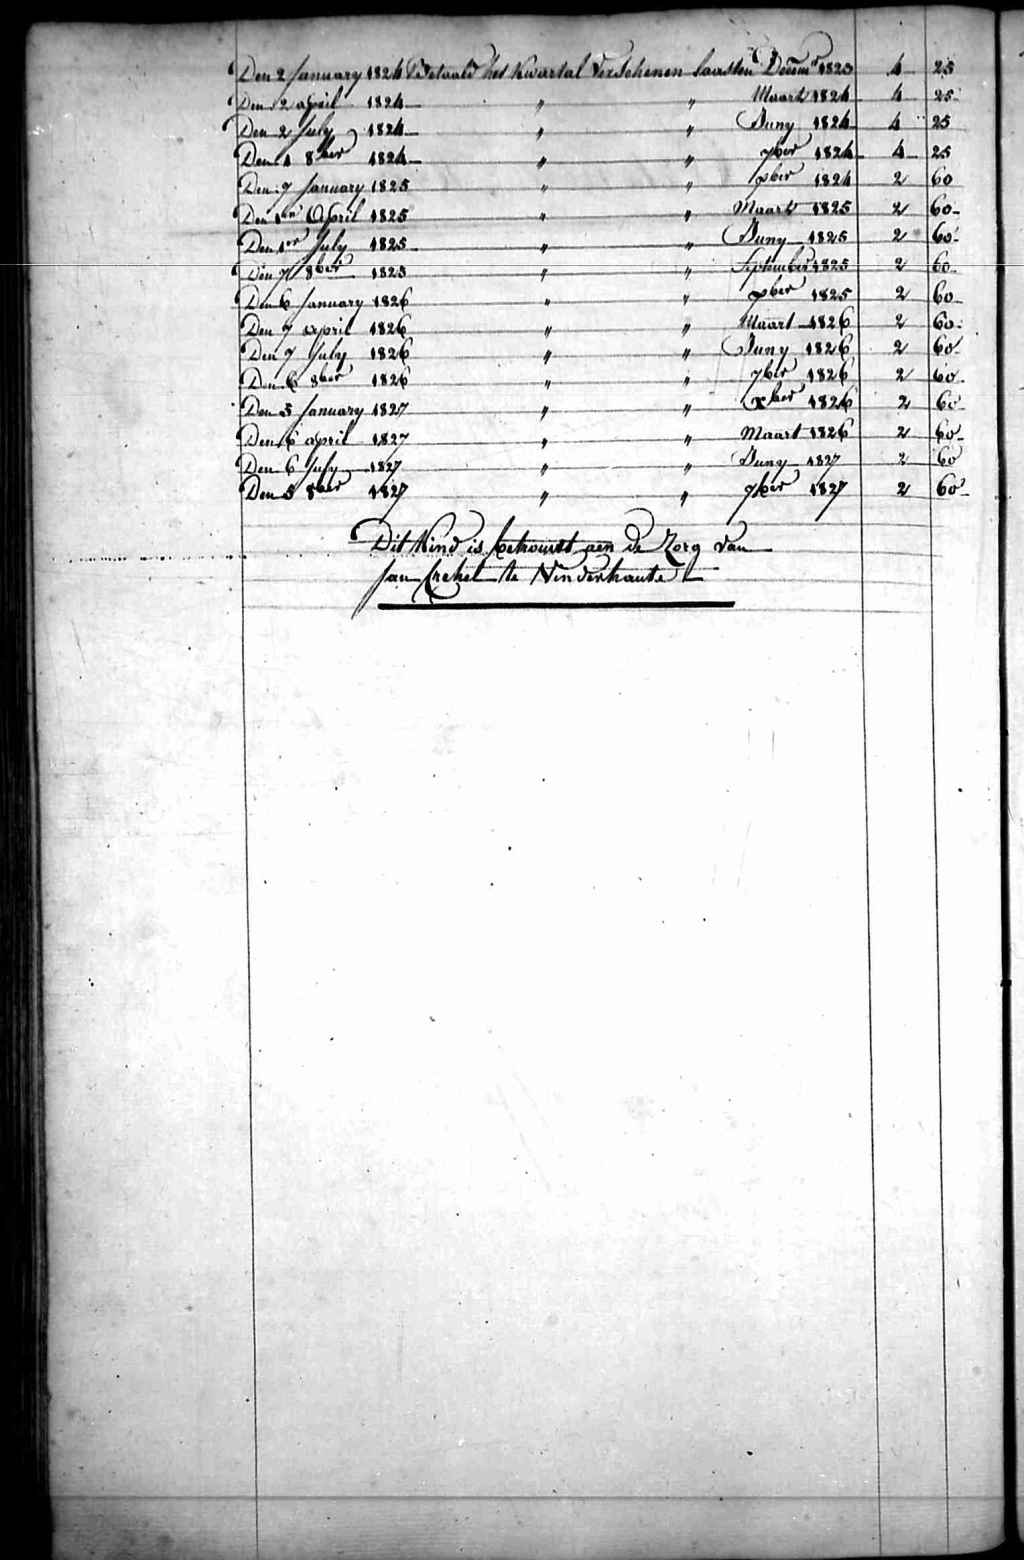 Den 2 January 1824 Betaald het Kwartal Verschenen laasten Decem.r 1823 4 25
Den 2 april 1824 " " Maart 1824 4 25
Den 2 July 1824 " " Juny 1824 4 25
Den 1 8ber 1824 " " 7ber 1824 4 25
Den 7 January 1825 " " xber 1824 2 60
Den 1en April 1825 " " Maart 1825 2 60
Den 1er July 1825 " " Juny 1825 2 60
Den 7 8ber 1825 " " September 1825 2 60
Den 6 January 1826 " " xber 1825 2 60
Den 7 april 1826 " " Maart 1826 2 60
Den 7 July 1826 " " Juny 1826 2 60
Den 6 8ber 1826 " " 7ber 1826 2 60
Den 5 January 1827 " " xber 1826 2 60
Den 6 april 1827 " " Maart 1826 2 60
Den 6 July 1827 " " Juny 1827 2 60
Den 5 8ber 1827 " " 7ber 1827 2 60
Dit Kind is betrouwt aen de Zorg van
Jan te